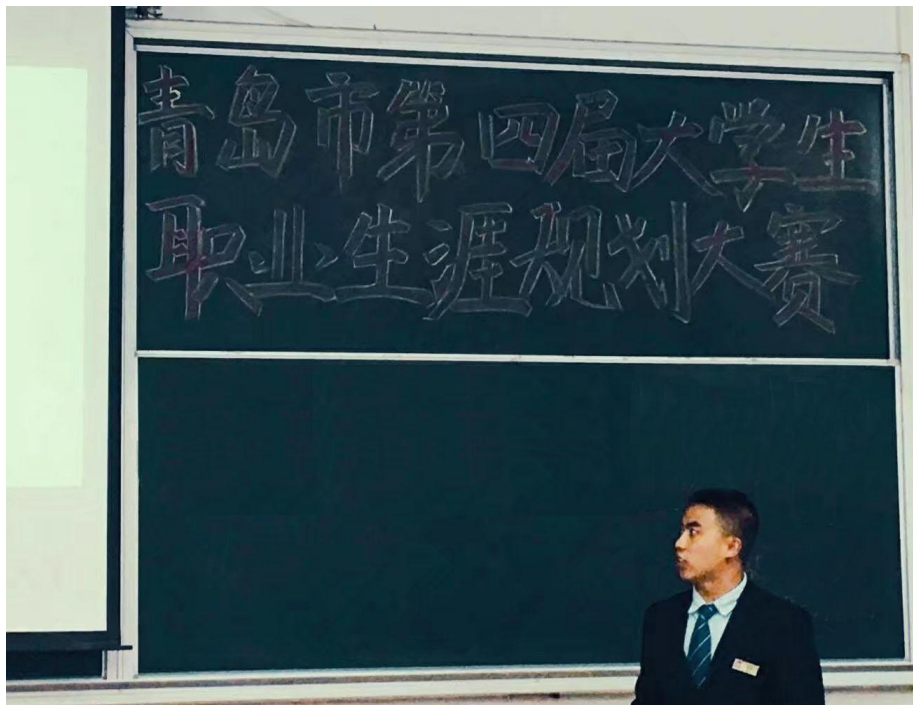 青岛市第四届大学生
职业生涯规划大赛